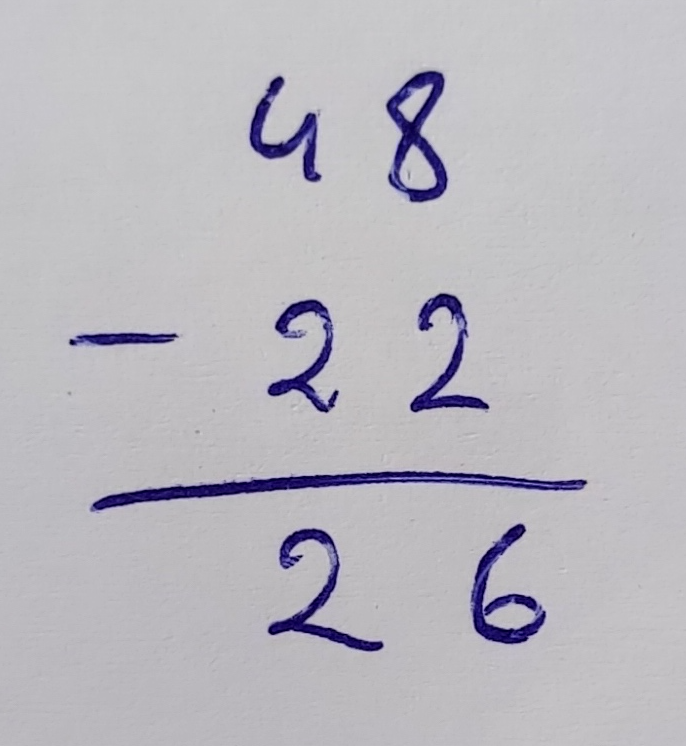 48
- 22
26